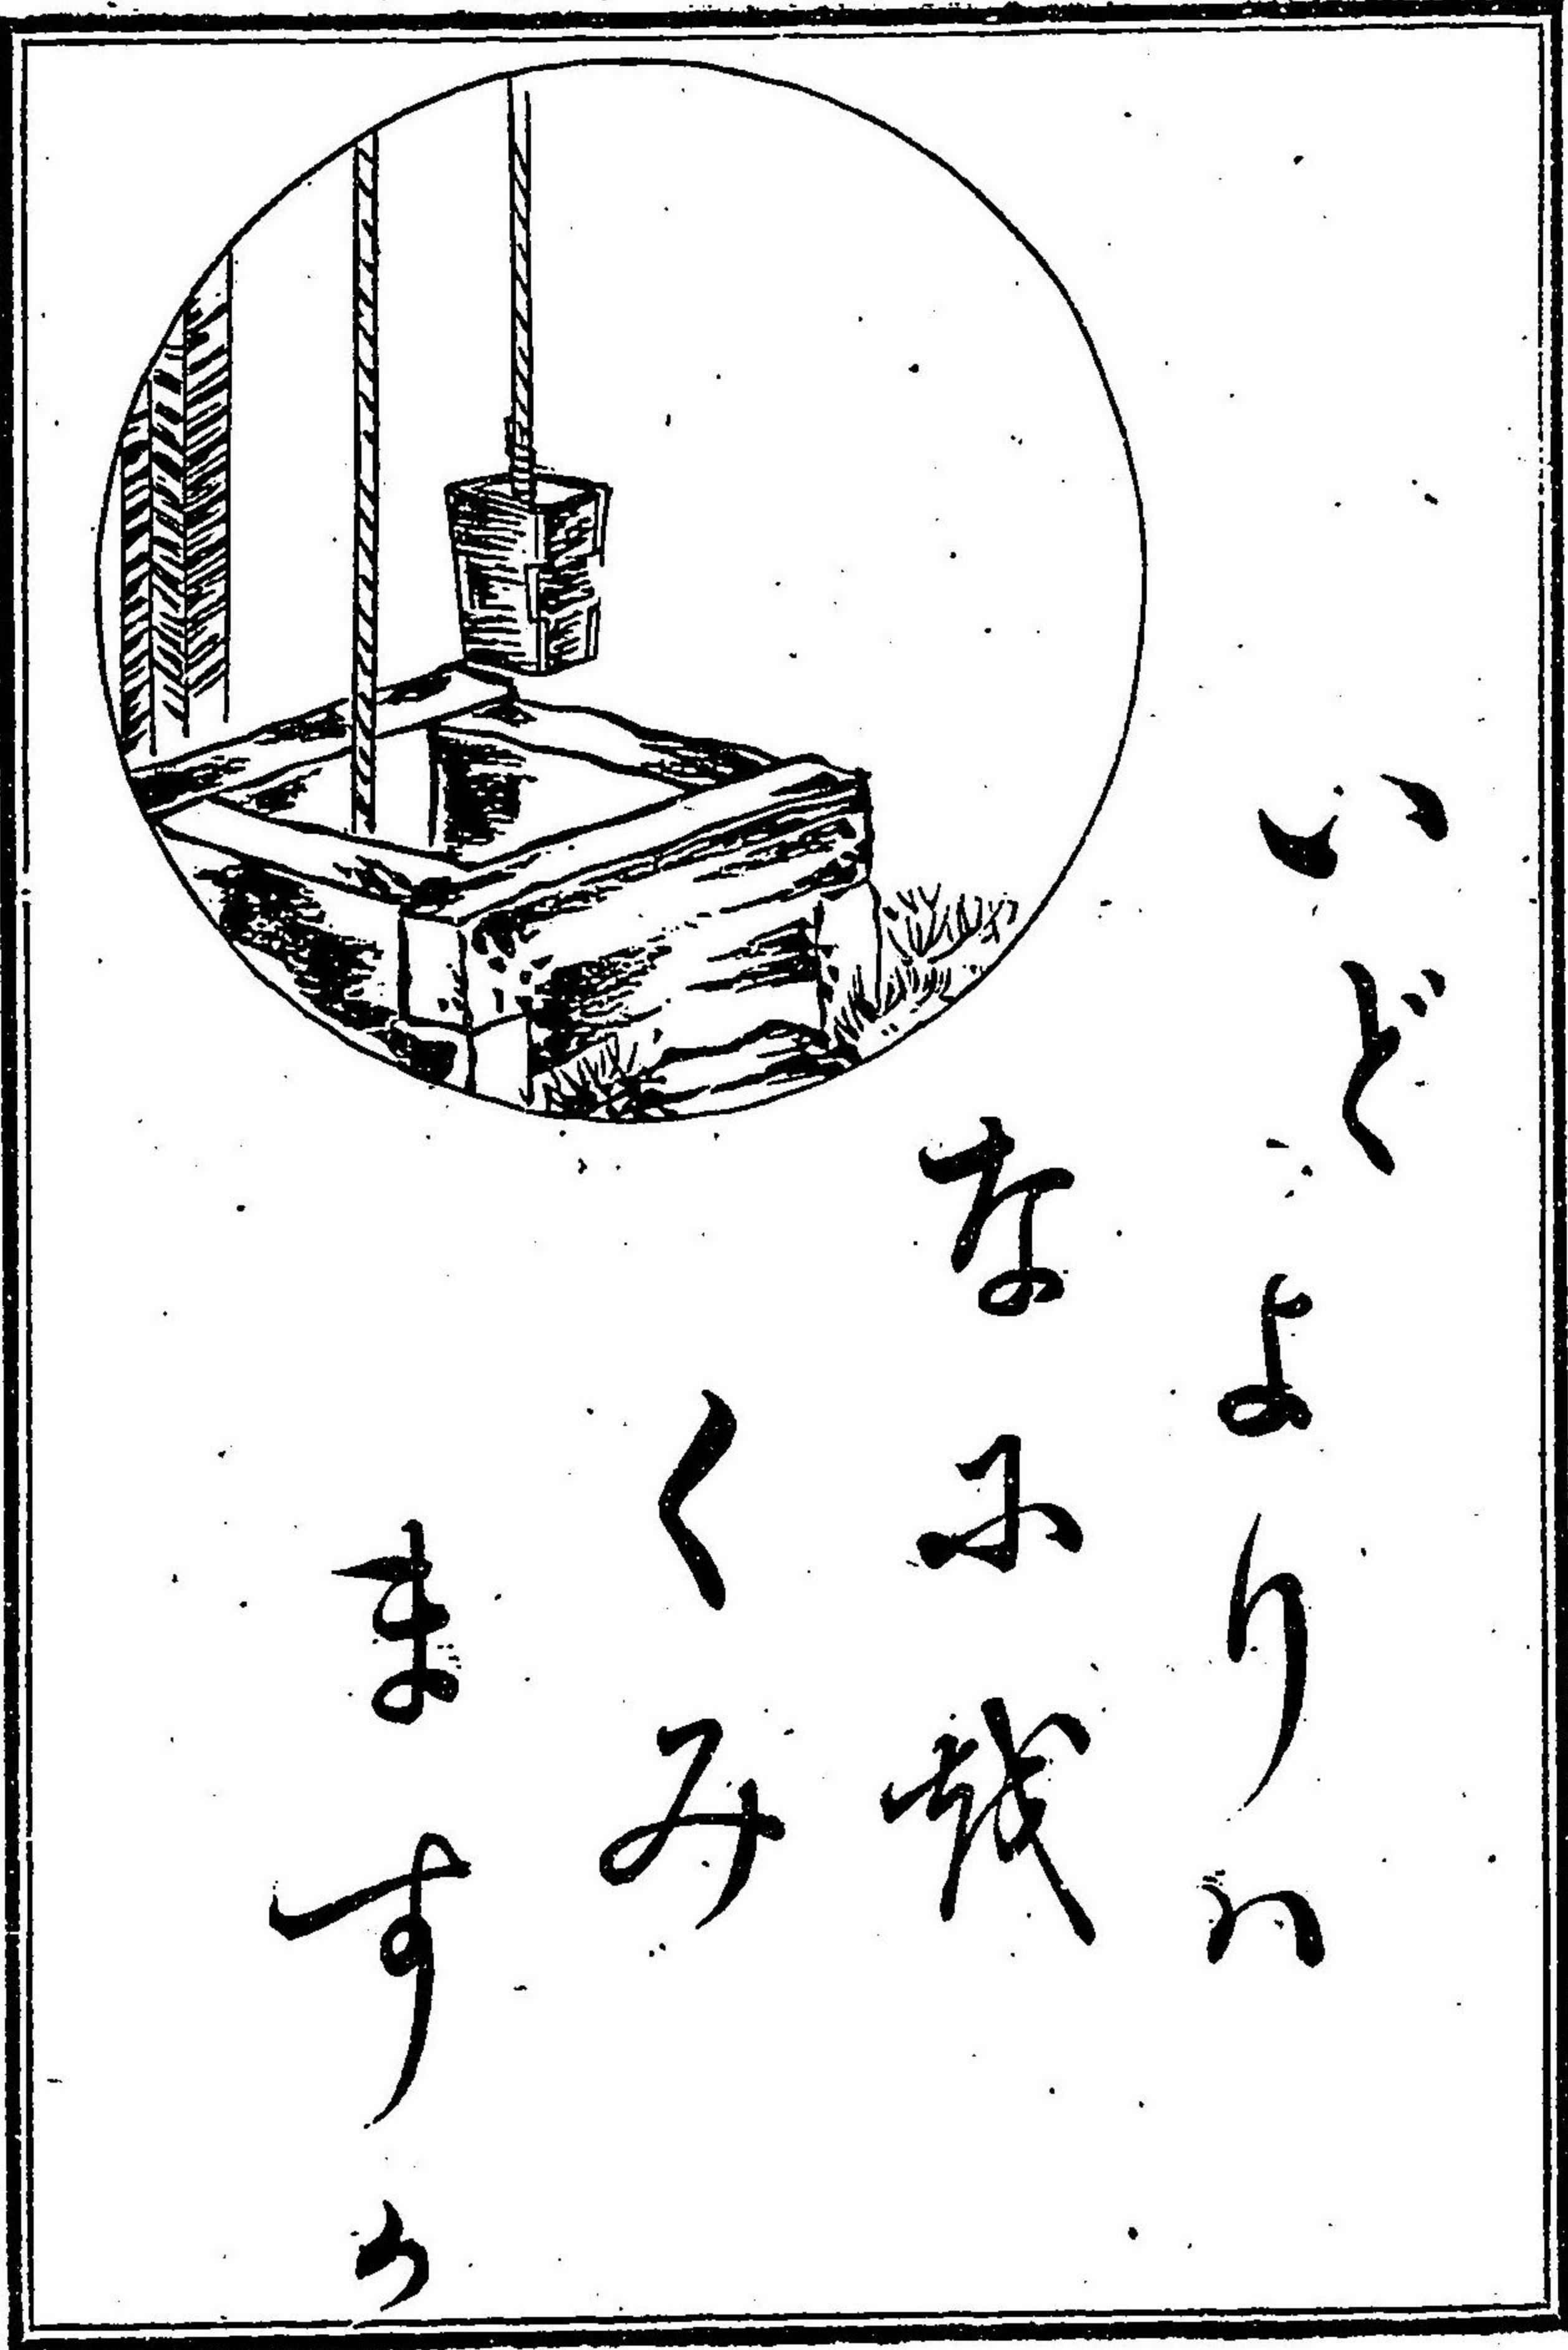 いどよりハ
なにを
くみ
ますか